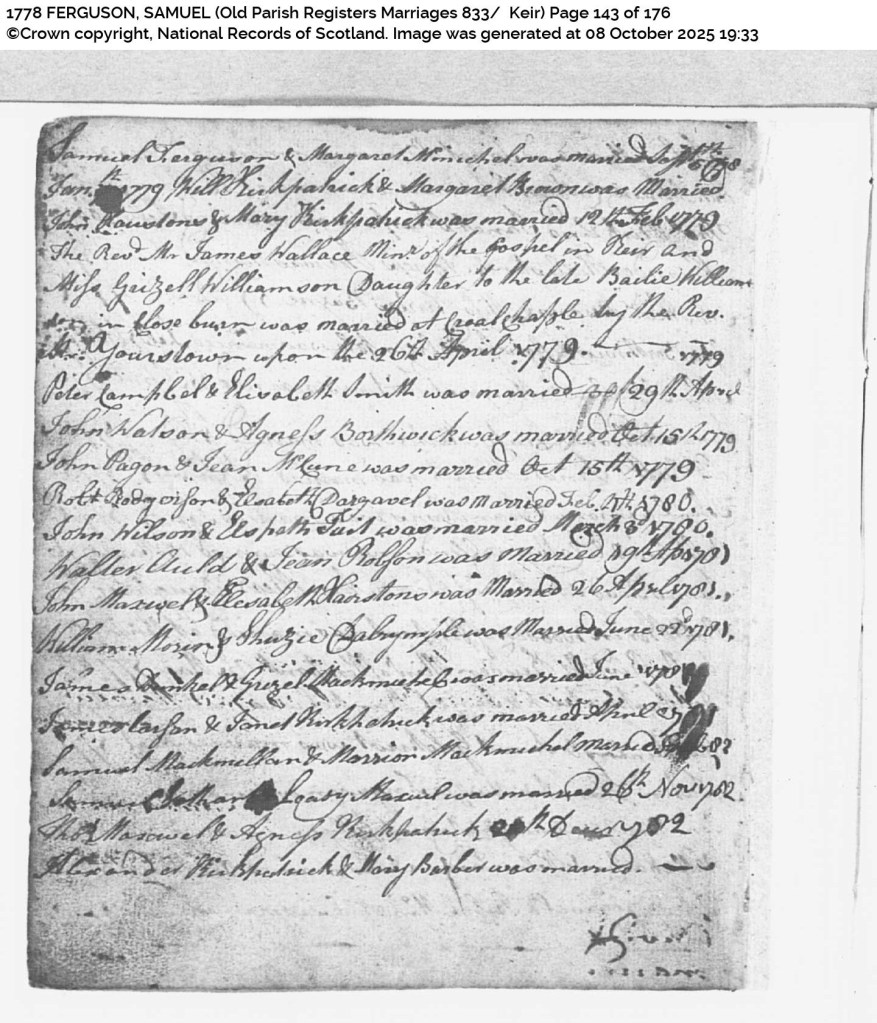 1778 FERGUSON, SAMUEL (Old Parish Registers Marriages 833/ Keir) Page 143 of 176
©Crown copyright, National Records of Scotland. Image was generated at 08 October 2025 19:33
Samuel Ferguson & Margaret Mcmichel was married Sept
Jan. 1779 Will Kirkpatrick & Margaret Brown was Married
John Houstone & Mary Kirkpatrick was married 12th Feb 1779
The Revd Mr James Wallace Minr of the Gospel in Keir and
Miss Grizell Williamson Daughter to the late Bailie William
son in Closeburn was married at Chaple by the Rev.
Mr. Yourstown upon the 26th April 1779.
1779
Peter Campbel & Elisabeth Smith was married 29th Aprel
John Watson & Agness Borthwick was married Oct 15th 1779
John Pagon & Jean McCune was married Oct 15th 1779
Robt & Elsabeth Dargavel was Married Feb. 1780.
John Wilson & Elspeth Tait was married March 1780.
Walter Auld & Jean Rolson was Married 19th Apr 1781
John Maxwel & Elesabeth Hairstons was Married 26 Aprl 1781.
William & Dalrymple was Married June 22d 1781.
James & Grizel Mackmichel was married June 1781
James Carson & Janet Kirkpatrick was married April
Samuel Mackmillan & Marrion Mackmichel married 82
Samuel Maxwel was married 26th Nov 1782.
Thos Maxwel & Agness Kirkpatrick Decr 1782
Alexander Kirkpatrick & Mary Barber was married.